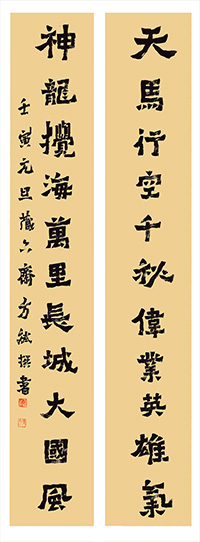 天馬行空千秋偉業英雄氣
神龍攪海萬里長城大國風
壬寅元旦
齋方
撰書